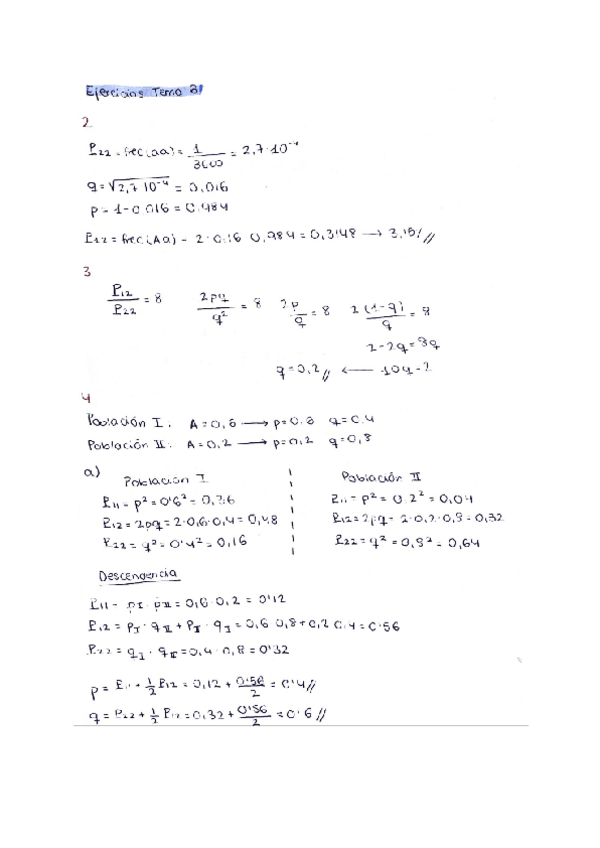 Ejercicios Tema 3
2
P₂₂ = frec(aa) = 1/3600 = 2,7·10⁻⁴
q = √2,7 10⁻⁴ = 0,016
p = 1-0.016 = 0.984
P₁₂ = frec(Aa) = 2·0.16 0,984 = 0,3148 → 3,15%//
3
P₁₂/P₂₂ = 8 2pq/q² = 8 2p/q = 8 2(1-q)/q = 8
2-2q = 8q
q = 0,2// ← 10q = 2
4
Población I: A = 0,6 → p = 0.6 q = 0.4
Población II: A = 0.2 → p = 0,2 q = 0,8
a) Población I Población II
P₁₁ = p² = 0'6² = 0,36 P₁₁ = p² = 0.2² = 0,04
P₁₂ = 2pq = 2·0,6·0,4 = 0,48 P₁₂ = 2pq = 2·0,2·0,8 = 0,32
P₂₂ = q² = 0'4² = 0,16 P₂₂ = q² = 0,8² = 0,64
Descendencia
P₁₁ = pI · pII = 0,6·0,2 = 0'12
P₁₂ = pI · qII + pII · qI = 0,6 0,8 + 0,2 0.4 = 0'56
P₂₂ = qI · qII = 0,4·0,8 = 0'32
p = P₁₁ + 1/2 P₁₂ = 0,12 + 0'56/2 = 0'4//
q = P₂₂ + 1/2 P₁₂ = 0,32 + 0'56/2 = 0'6//